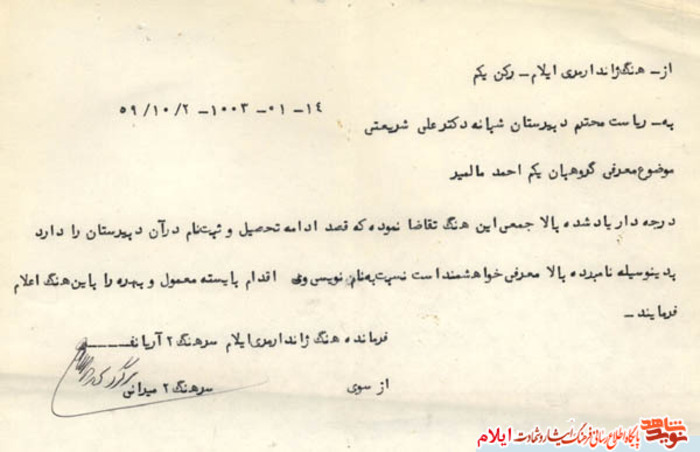 از ـ هنگ ژاندارمری ایلام ـ رکن یکم
به ـ ریاست محترم دبیرستان شبانه دکتر علی شریعتی
۱۴ ـ ۰۱ ـ ۱۰۰۳ ـ ۵۹/۱۰/۲
موضوع معرفی گروهبان یکم احمد مالمیر
درجه دار یاد شده بالا جمعی این هنگ تقاضا نموده که قصد ادامه تحصیل و ثبت نام در آن دبیرستان را دارد
بدینوسیله نامبرده بالا معرفی خواهشمند است نسبت به نام نویسی وی اقدام بایسته معمول و بهره را باین هنگ اعلام
فرمایند ـ
فرمانده هنگ ژاندارمری ایلام سرهنگ ۲ آریانفـــر
از سوی سرهنگ ۲ میرانی
نوید شاهد
پایگاه اطلاع رسانی فرهنگ ایثار و شهادت ایلام